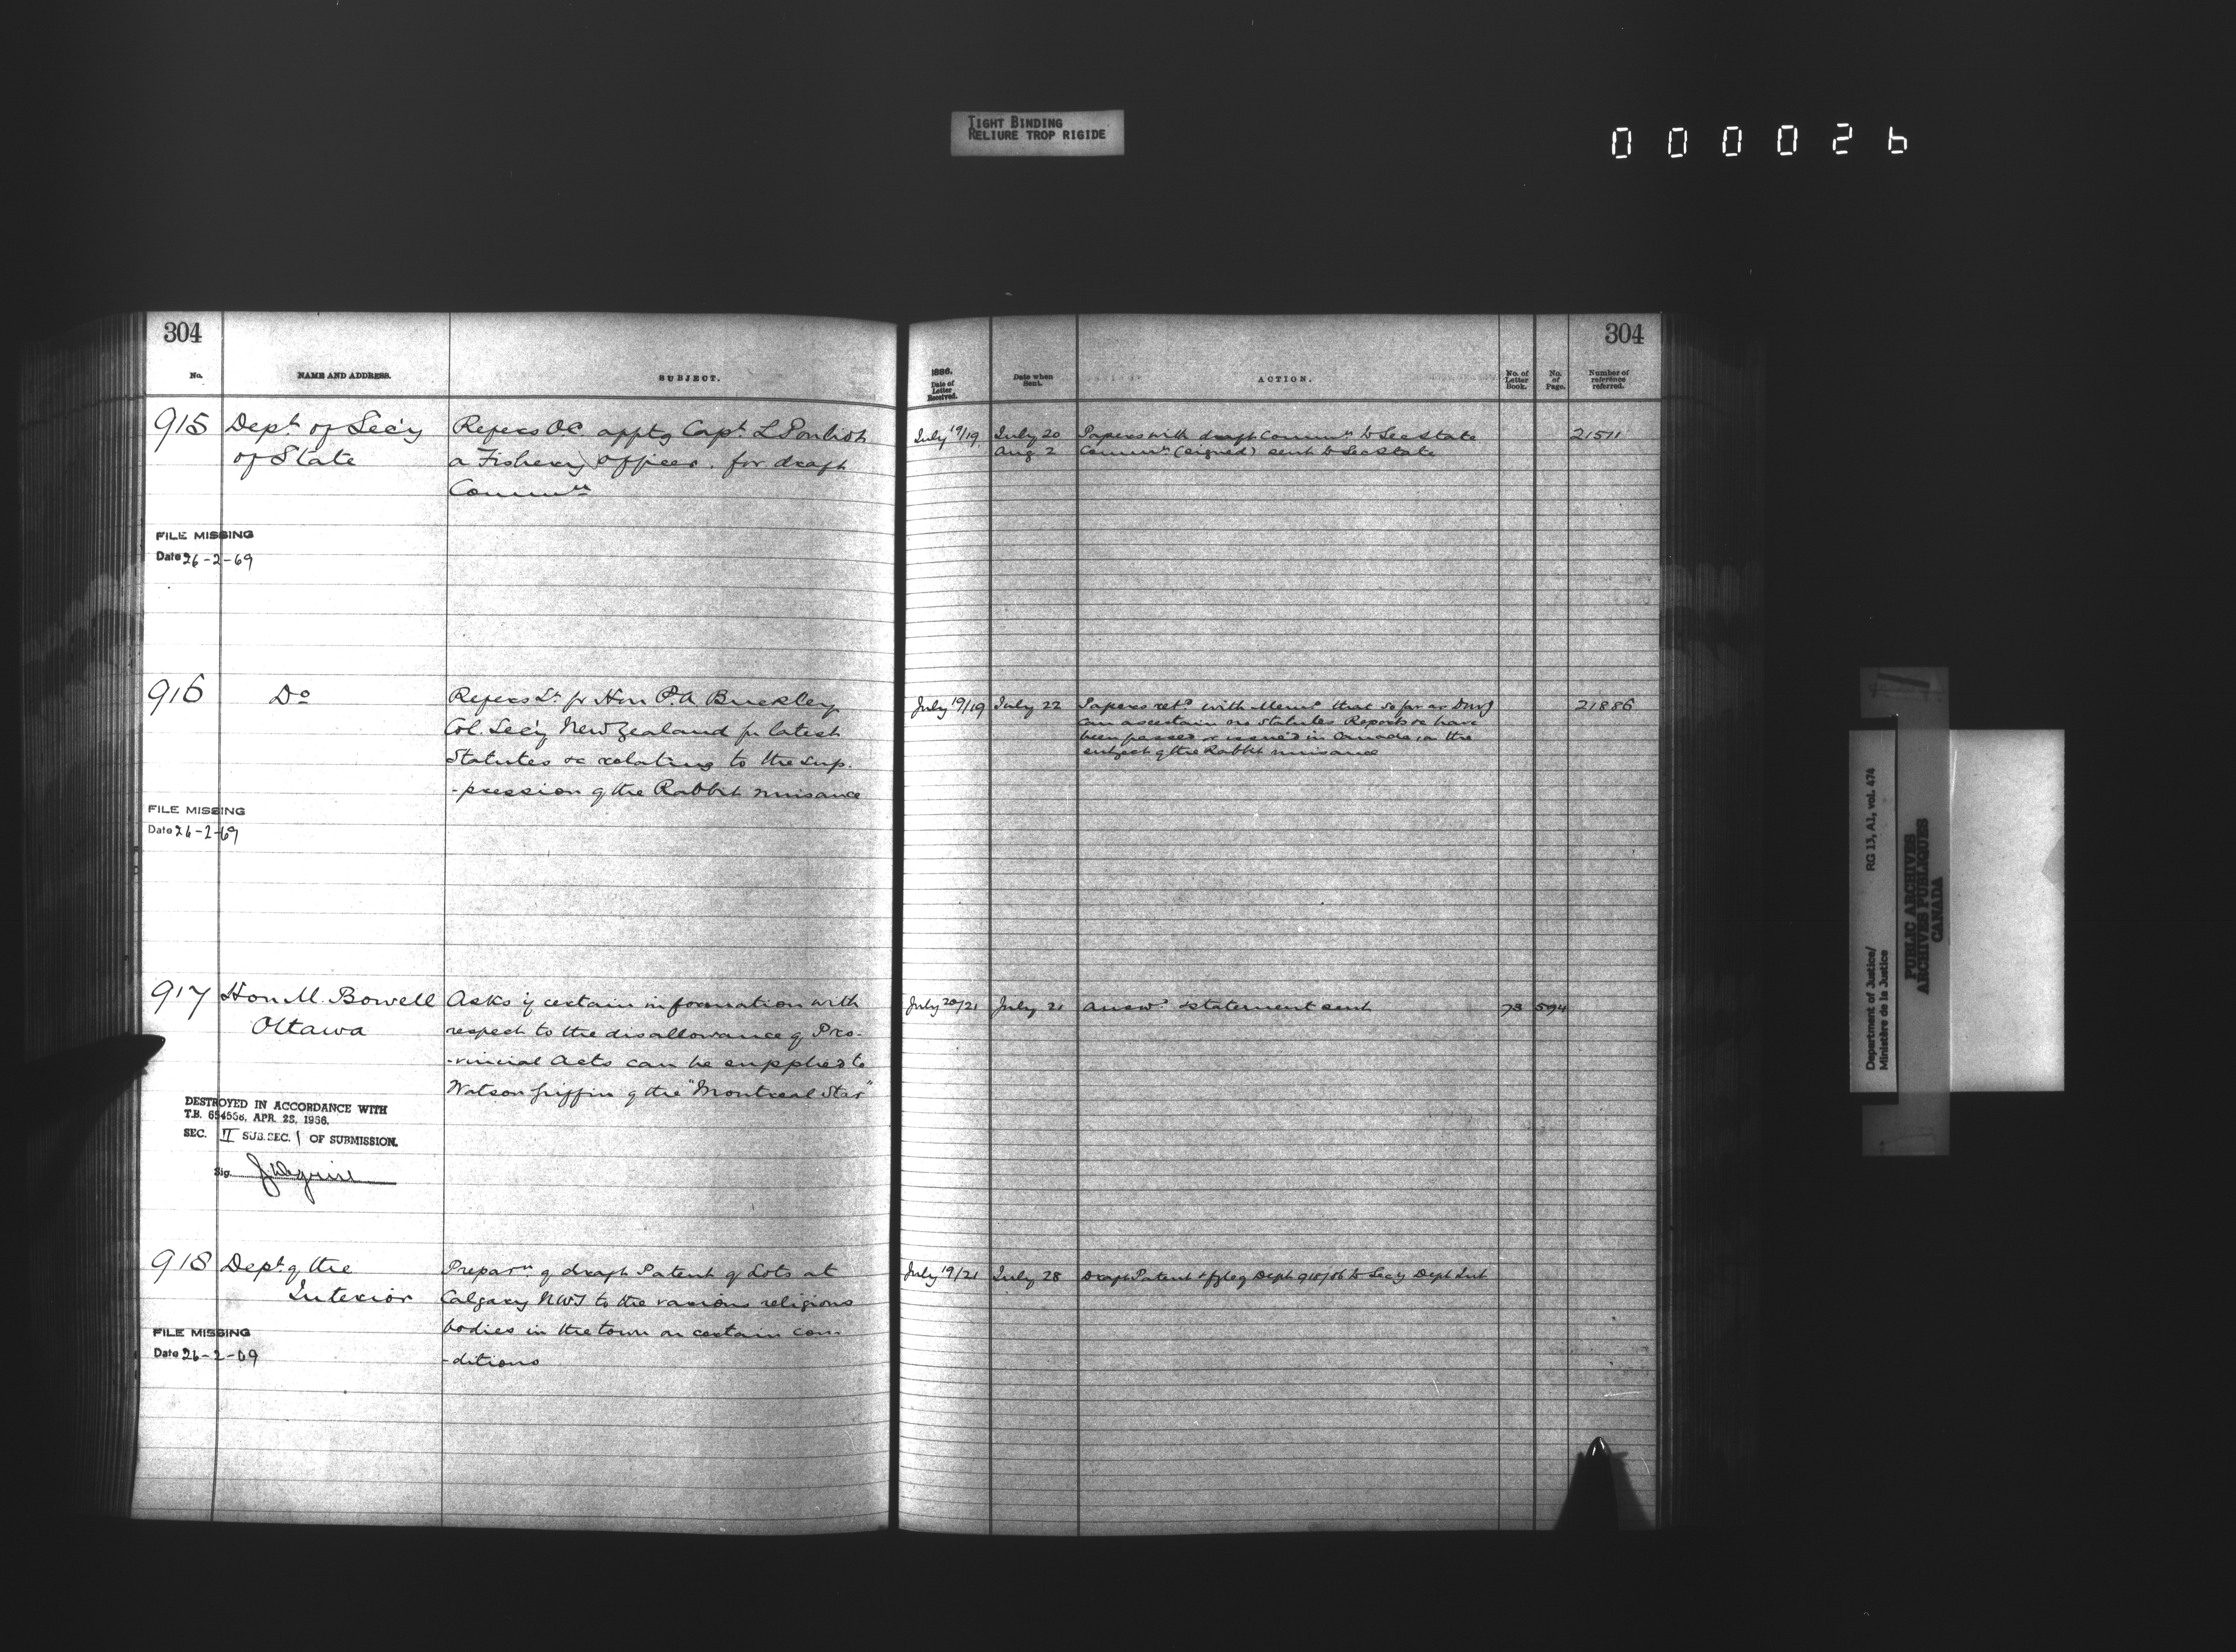 TIGHT BINDING
RELIURE TROP RIGIDE
000026
304
No.
NAME AND ADDRESS.
SUBJECT.
915
Dept. of Sec'y
of State
Refers OC. apptg Capt. L
a Fishery Officer. for draft
Commn
FILE MISSING
Date 26-2-69
916
Do
Refers Lr. fr Hon P.A Buckley
Col. Sec'y New Zealand for latest
Statutes &c relating to the sup.
-pression of the Rabbit nuisance
FILE MISSING
Date 26-2-69
917
Hon M. Bowell
Ottawa
Asks if certain information with
respect to the disallowance of Pro-
-vincial Acts can be supplied to
Watson Griffin of the "Montreal Star"
DESTROYED IN ACCORDANCE WITH
T.B. APR. 1956.
SEC. II SUB.SEC. 1 OF SUBMISSION.
Sig.
918
Dept. of the
Interior
Preparn of draft Patent of Lots at
Calgary NWT to the various religious
bodies in the town on certain con-
-ditions
FILE MISSING
Date 26-2-69
304
1886.
Date of
Letter
Received.
Date when
Sent.
ACTION.
No. of
Letter
Book.
No.
of
Page.
Number of
reference
referred.
July 19/19
July 20
Papers with draft Commn to Sec State
21511
Aug 2
Commn (signed) sent to Sec State
July 19/19
July 22
Papers retd with Memo that so far as DMJ
21886
can ascertain no Statutes Reports &c have
been passed or issued in Canada, on the
subject of the Rabbit nuisance
July 20/21
July 21
Answd statement sent
73
594
July 19/21
July 28
Draft Patent Dept 918/86 to Secy Dept Int
Department of Justice/ RG 13, A1, vol. 474
Ministère de la Justice
PUBLIC ARCHIVES
ARCHIVES PUBLIQUES
CANADA